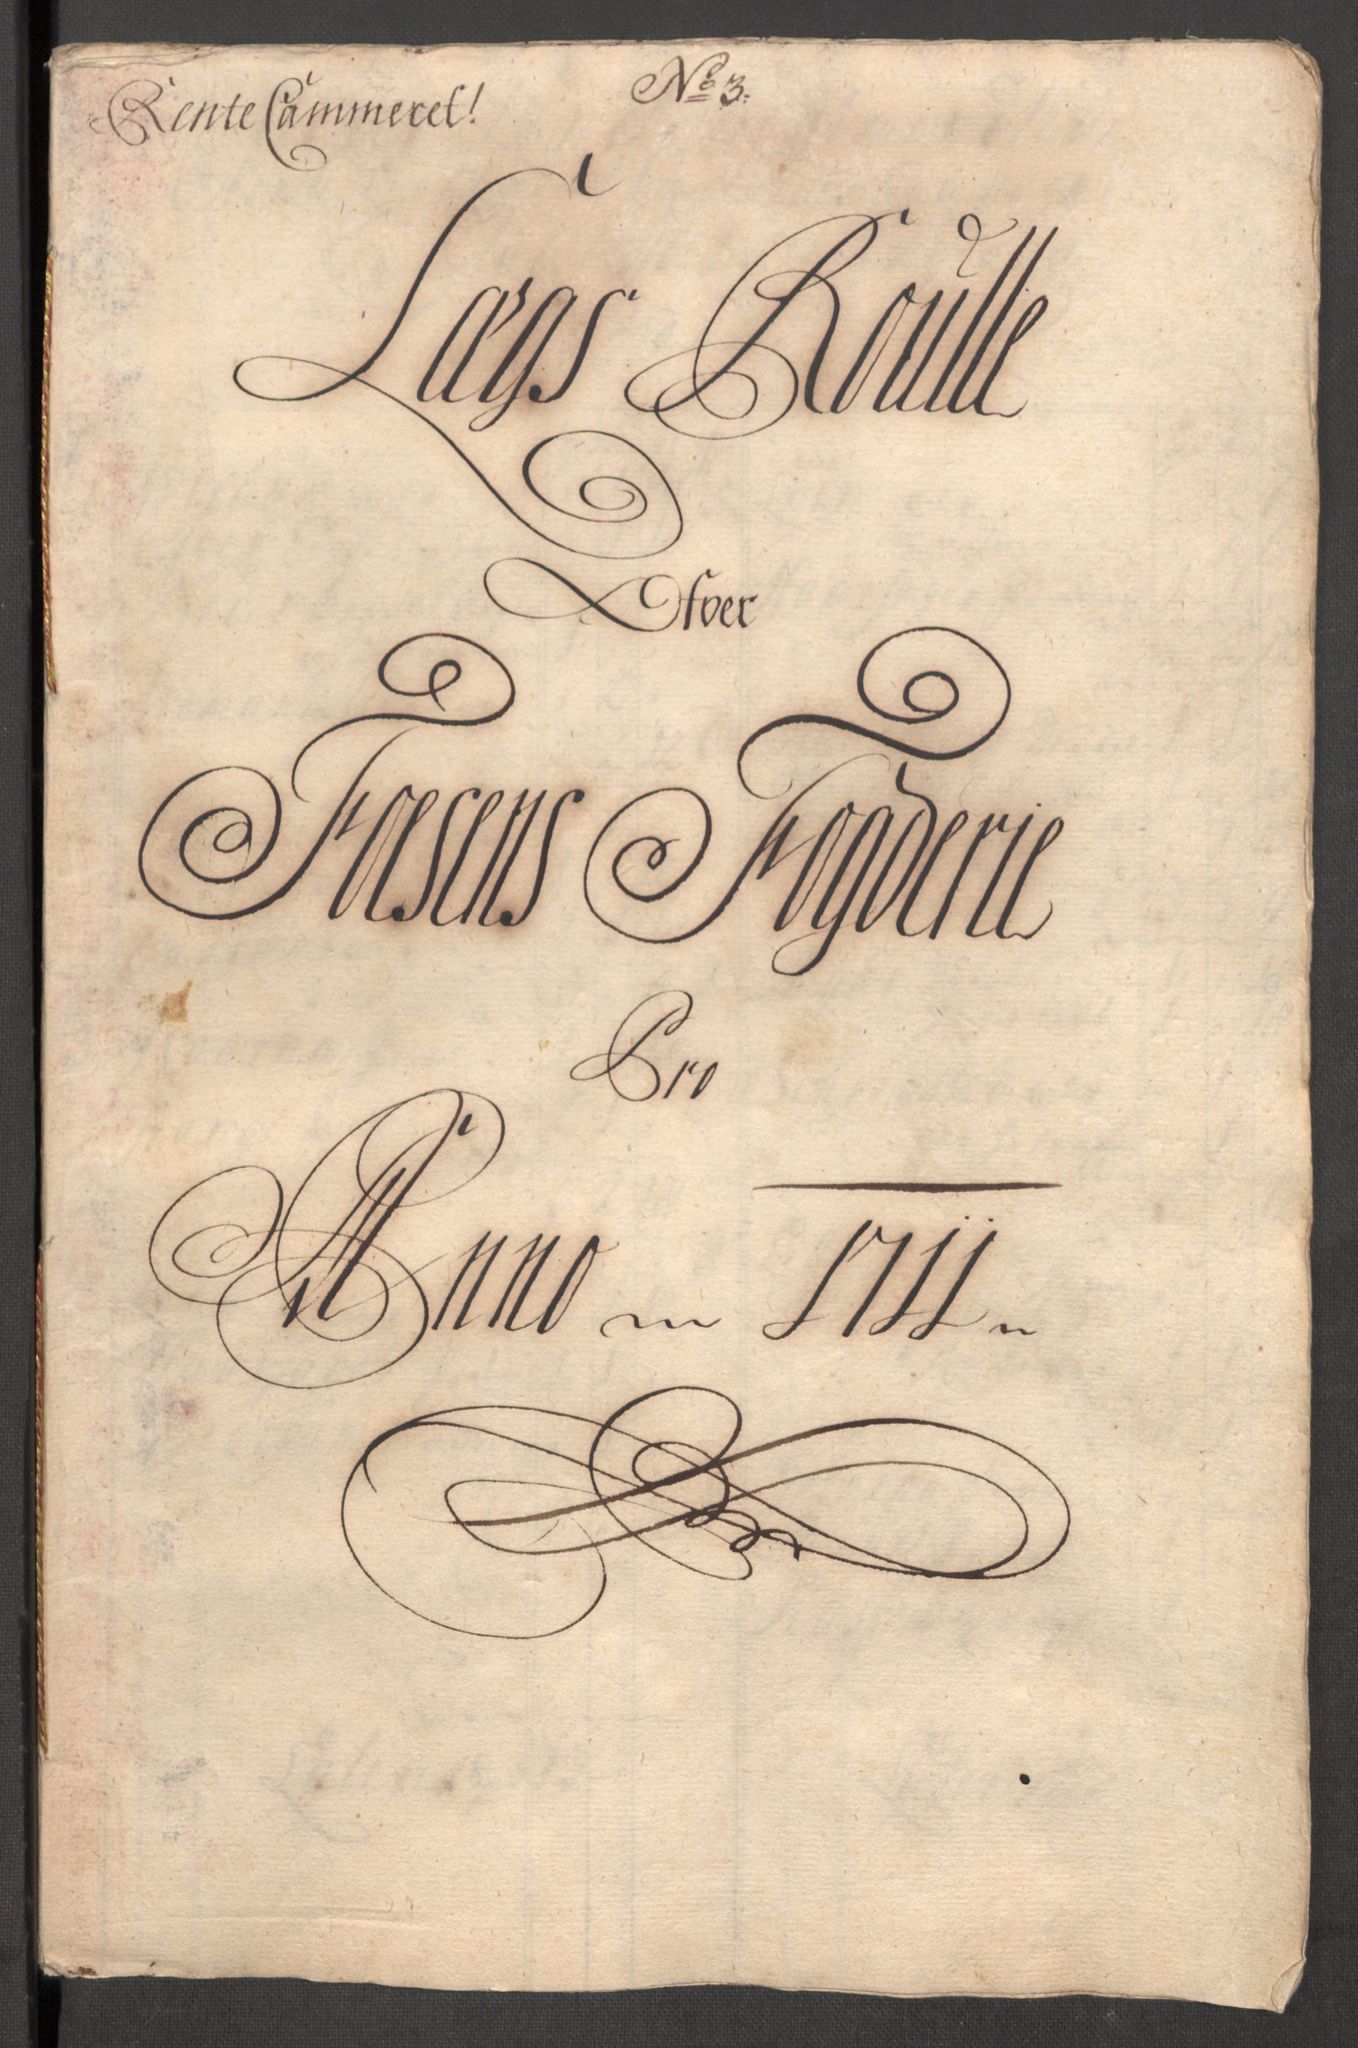 No 3.
Rente Cammeret!
Lægs Roulle
Ofver
Foesens Fogderie
Pro
Anno 1711